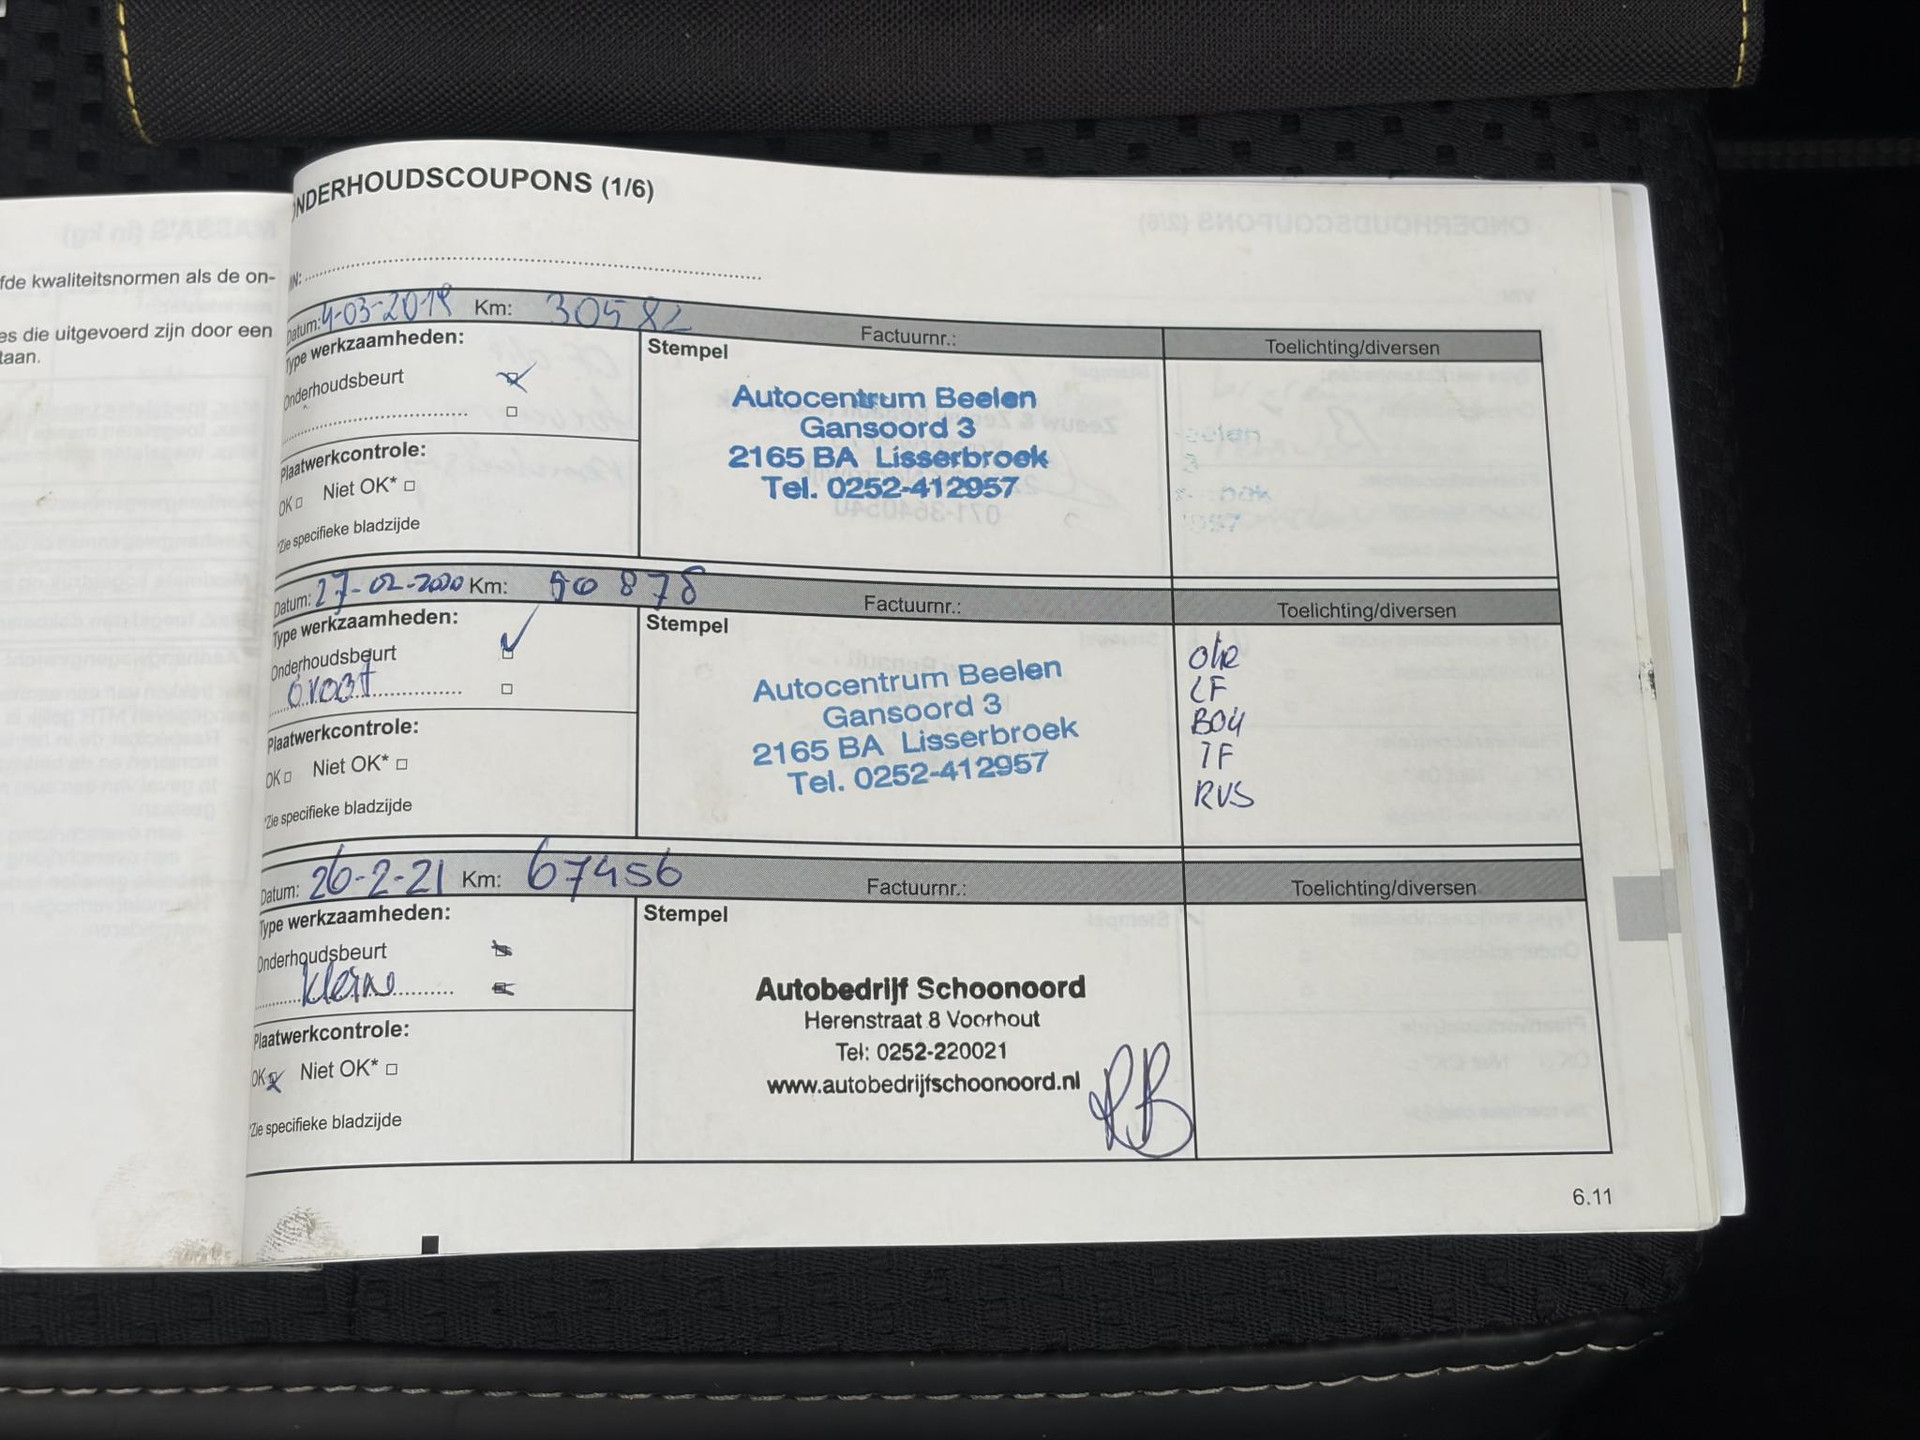 fde kwaliteitsnormen als de on-
es die uitgevoerd zijn door een
taan.
NDERHOUDSCOUPONS (1/6)
IN:
Datum: 4-03-2019 Km: 30582 Factuurnr.: Toelichting/diversen
Type werkzaamheden:
Stempel
Onderhoudsbeurt
Autocentrum Beelen
Gansoord 3
2165 BA Lisserbroek
Tel. 0252-412957
Plaatwerkcontrole:
OK Niet OK*
*Zie specifieke bladzijde
Datum: 27-02-2020 Km: 50878 Factuurnr.: Toelichting/diversen
Type werkzaamheden:
Stempel
Onderhoudsbeurt
Groot
Autocentrum Beelen
Gansoord 3
2165 BA Lisserbroek
Tel. 0252-412957
LF
TF
RVS
Plaatwerkcontrole:
OK Niet OK*
*Zie specifieke bladzijde
Datum: 26-2-21 Km: 67456 Factuurnr.: Toelichting/diversen
Type werkzaamheden:
Stempel
Onderhoudsbeurt
Kleine
Autobedrijf Schoonoord
Herenstraat 8 Voorhout
Tel: 0252-220021
www.autobedrijfschoonoord.nl
Plaatwerkcontrole:
OK Niet OK*
*Zie specifieke bladzijde
6.11